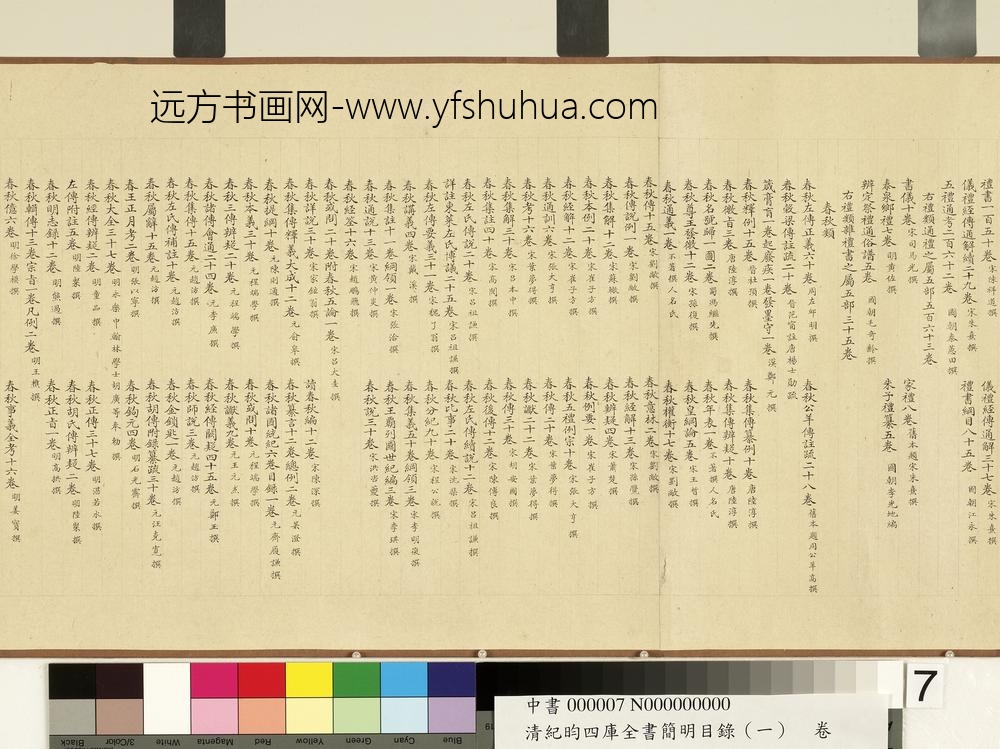 远方书画网-www.yfshuhua.com
禮書一百五十卷 宋陳祥道撰 儀禮經傳通解三十七卷 宋朱熹撰
儀禮經傳通解續二十九卷 宋朱熹撰 禮書綱目八十五卷 國朝江永撰
五禮通考二百六十二卷 國朝秦蕙田撰
右禮類通禮之屬五部五百六十三卷
書儀十卷 宋司馬光撰 家禮八卷 舊本題宋朱熹撰
泰泉鄉禮七卷 明黃佐撰 朱子禮纂五卷 國朝李光地編
辨定祭禮通俗譜五卷 國朝毛奇齡撰
右禮類雜禮書之屬五部三十五卷
春秋類
春秋左傳正義六十卷 周左邱明撰 春秋公羊傳註疏二十八卷 舊本題周公羊高撰
春秋穀梁傳註疏二十卷 晉范甯註唐楊士勛疏
箴膏肓一卷起廢疾一卷發墨守一卷 漢鄭元撰
春秋釋例十五卷 晉杜預撰 春秋集傳纂例十卷 唐陸淳撰
春秋微旨三卷 唐陸淳撰 春秋集傳辨疑十卷 唐陸淳撰
春秋名號歸一圖二卷 蜀馮繼先撰 春秋年表一卷 不著撰人名氏
春秋尊王發微十二卷 宋孫復撰 春秋皇綱論五卷 宋王晳撰
春秋通義一卷 不著撰人名氏 春秋權衡十七卷 宋劉敞撰
春秋傳十五卷 宋劉敞撰 春秋意林二卷 宋劉敞撰
春秋傳說例一卷 宋劉敞撰 春秋經解十三卷 宋孫覺撰
春秋集解十二卷 宋蘇轍撰 春秋辨疑四卷 宋蕭楚撰
春秋本例二十卷 宋崔子方撰 春秋例要一卷 宋崔子方撰
春秋經解十二卷 宋崔子方撰 春秋五禮例宗十卷 宋張大亨撰
春秋通訓六卷 宋張大亨撰 春秋傳二十卷 宋葉夢得撰
春秋考十六卷 宋葉夢得撰 春秋讞二十二卷 宋葉夢得撰
春秋集解三十卷 宋呂本中撰 春秋傳三十卷 宋胡安國撰
春秋集註四十卷 宋高閌撰 春秋後傳十二卷 宋陳傅良撰
春秋左氏傳說二十卷 宋呂祖謙撰 春秋左氏傳續說十二卷 宋呂祖謙撰
詳註東萊左氏博議二十五卷 宋呂祖謙撰 春秋比事二十卷 宋沈棐撰
春秋左傳要義三十一卷 宋魏了翁撰 春秋分紀九十卷 宋程公說撰
春秋講義四卷 宋戴溪撰 春秋集義五十卷綱領三卷 宋李明復撰
春秋集註十一卷綱領一卷 宋張洽撰 春秋王霸列國世紀編三卷 宋李琪撰
春秋通說十三卷 宋黃仲炎撰 春秋說三十卷 宋洪咨夔撰
春秋經筌十六卷 宋趙鵬飛撰
春秋或問二十卷附春秋五論一卷 宋呂大圭撰
春秋詳說三十卷 宋家鉉翁撰 讀春秋編十二卷 宋陳深撰
春秋集傳釋義大成十二卷 元俞皋撰 春秋纂言十二卷總例一卷 元吳澄撰
春秋提綱十卷 元陳則通撰 春秋諸國統紀六卷目錄一卷 元齊履謙撰
春秋本義三十卷 元程端學撰 春秋或問十卷 元程端學撰
春秋三傳辨疑二十卷 元程端學撰 春秋讞義九卷 元王元杰撰
春秋諸傳會通二十四卷 元李廉撰 春秋經傳闕疑四十五卷 元鄭玉撰
春秋集傳十五卷 元趙汸撰 春秋師說三卷 元趙汸撰
春秋左氏傳補註十卷 元趙汸撰 春秋金鎖匙一卷 元趙汸撰
春秋屬辭十五卷 元趙汸撰 春秋胡傳附錄纂疏三十卷 元汪克寬撰
春王正月考二卷 明張以寧撰 春秋鉤元四卷 明石光霽撰
春秋大全三十七卷 明永樂中翰林學士胡廣等奉勅撰
春秋經傳辨疑二卷 明童品撰 春秋正傳三十七卷 明湛若水撰
左傳附註五卷 明陸粲撰 春秋胡氏傳辨疑二卷 明陸粲撰
春秋明志錄十二卷 明熊過撰 春秋正旨一卷 明高拱撰
春秋輯傳十三卷宗旨一卷凡例二卷 明王樵撰
春秋億六卷 明徐學謨撰 春秋事義全考十六卷 明姜寶撰
Black
3/Color
White
Magenta
Red
Yellow
Green
Cyan
Blue
19
7
中書 000007 N000000000
清紀昀四庫全書簡明目錄（一） 卷